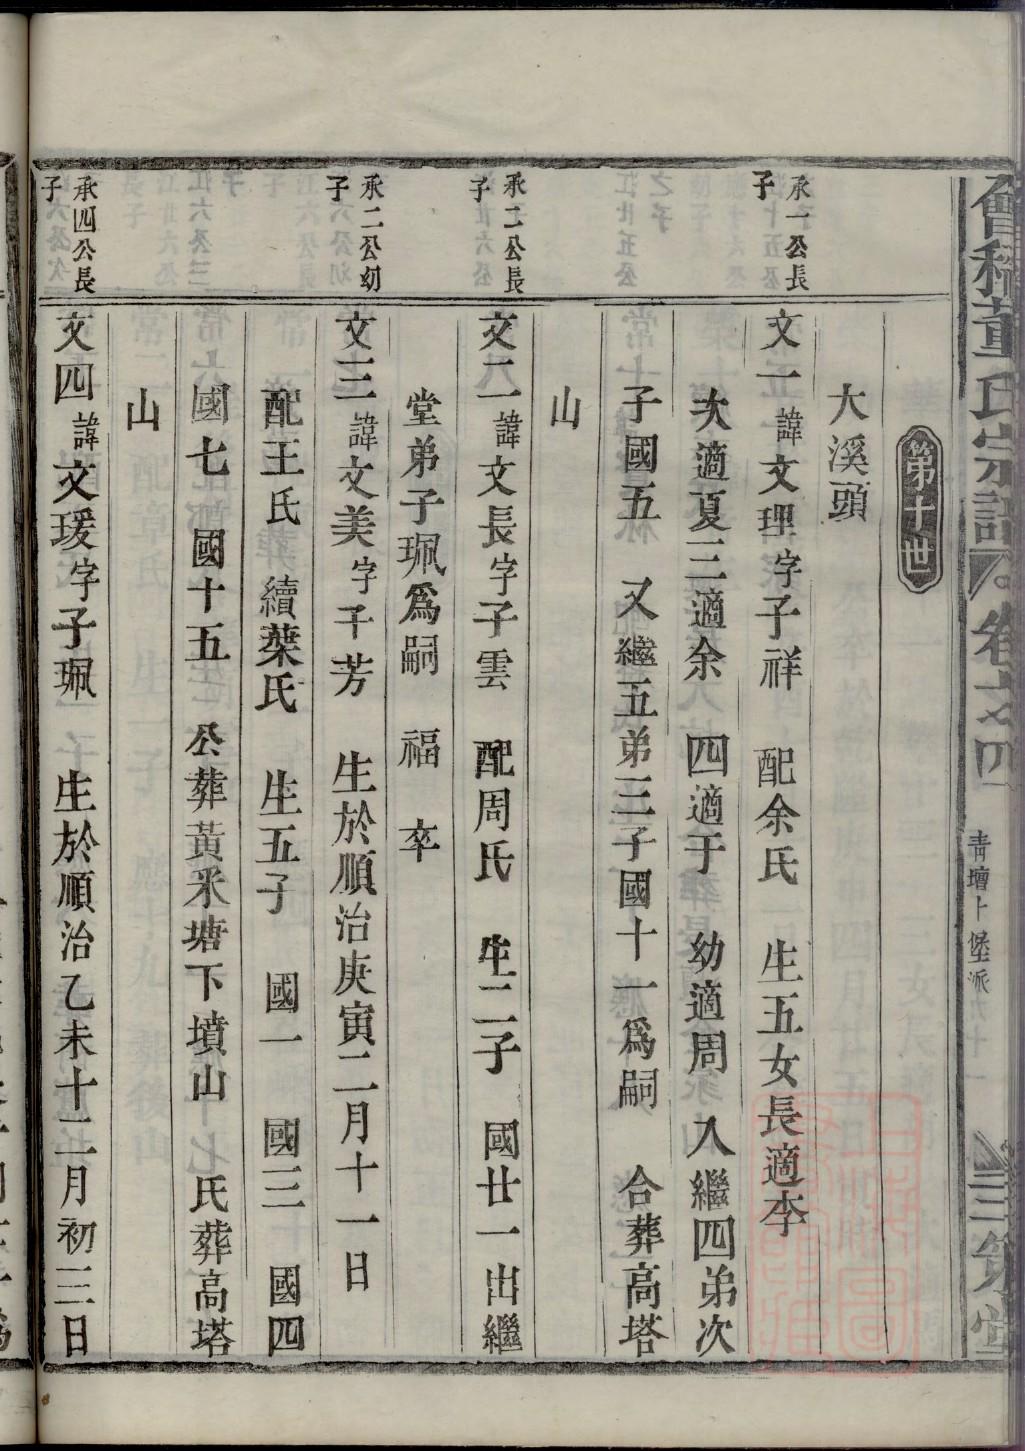 會稽董氏宗譜
卷之四
青壇上堡派
三策堂
第十世
大溪頭
承一公長
子
文一諱文理字子祥 配余氏 生五女長適李
次適夏三適余 四適于 幼適周 入繼四弟次
子國五 又繼五弟三子國十一爲嗣 合葬高塔
山
承二公長
子
文二諱文長字子雲 配周氏 生二子 國廿一出繼
堂弟子珮爲嗣 福 卒
承二公幼
子
文三諱文美字子芳 生於順治庚寅二月十一日
配王氏 續葉氏 生五子 國一 國三 國四
國七 國十五 公葬黃米塘下墳山 氏葬高塔
山
承四公長
子
文四諱文瑗字子珮 生於順治乙未十二月初三日